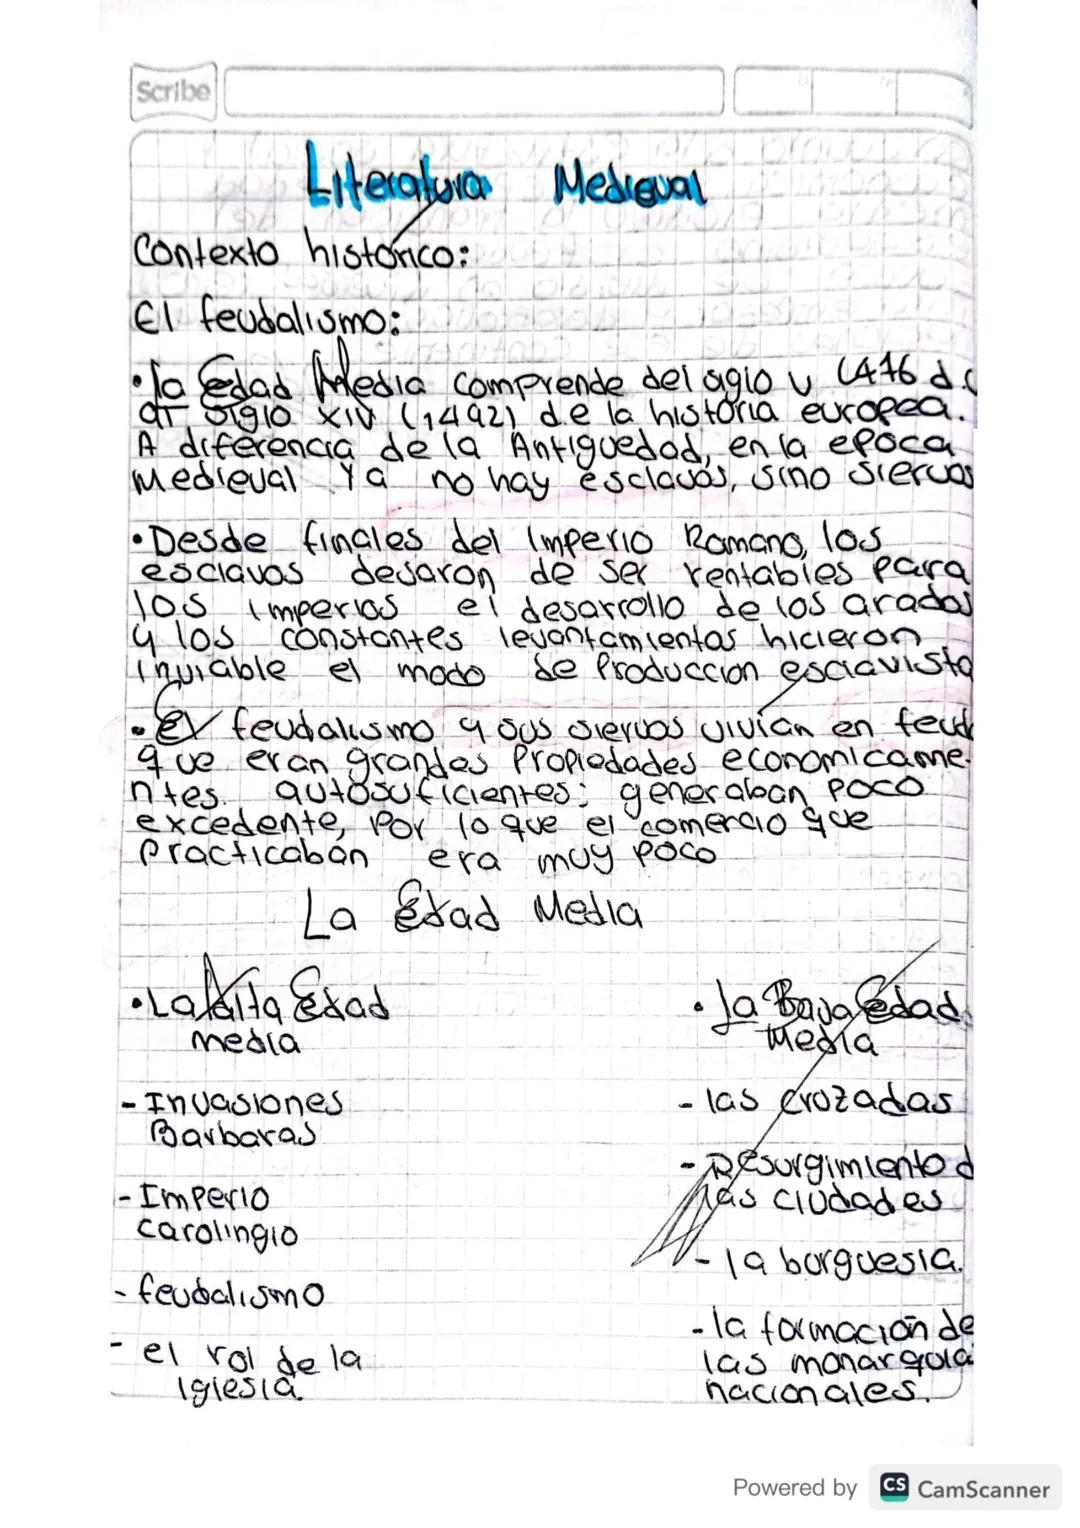 Scribe
Literatura Medieval
Contexto histórico:
El feudalismo:
• la Edad Media comprende del siglo v (476 d.c
al siglo XIV (1492) de la historia europea.
A diferencia de la Antiguedad, en la epoca
Medieval Ya no hay esclavos, sino siervos
• Desde finales del Imperio Romano, los
esclavos dejaron de ser rentables para
los imperios el desarrollo de los arados
y los constantes levantamientos hicieron
inviable el modo de Produccion esclavista
• El feudalismo y sus siervos vivían en feud
que eran grandes Propiedades economicame-
ntes. autosuficientes; generaban poco
excedente, Por lo que el comercio que
Practicaban era muy poco
La Edad Media
• La Alta Edad
media
- Invasiones
Barbaras
- Imperio
carolingio
- feudalismo
- el rol de la
iglesia.
• La Baja Edad
Media
- las cruzadas
- Resurgimiento d
las ciudades
- la burguesia.
- la formación de
las monarquia
nacionales.
Powered by CS CamScanner